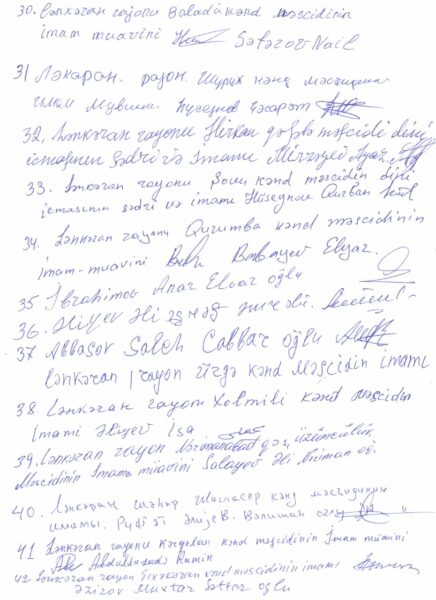 30. Lənkəran rayonu Baladı kənd məscidinin
imam muavini Səfərov Nail
31 Ләнкәран. рајон. Шүрүк кәнд мәсҹидинин
имам мувини.
32. Lənkəran rayonu Hirkan qəsəbə məscidi dini
icmasının sədri və imamı Mirzəyev Ayaz
33. Lənkəran rayonu Şovu kənd məscidin dini
icmasının sədri və imamı Hüseynov Qurban
34. Lənkəran rayonu Qurumba kənd məscidinin
imam-muavini Babayev Elyar.
35 İbrahimov Anar Elxar oğlu
36. Əliyev Əli
37 Abbasov Saleh Cabbar oğlu
Lənkəran rayon Ürgə kənd Məsçidin imamı
38. Lənkəran rayonu Xolmili kənd məscidin
İmami Əliyev İsa
39. Lənkəran rayon Nərimanabad qəs, üzümçülük
Məscidinin İmam muavini Salayev Əli Nəriman oğ.
40. Ләнкәран шәһәр кәнд мәсҹидинин
имамы.
41 Lənkəran rayonu kənd məscidinin İmam müavini
Abdullazadə Ramin
42 Lənkəran rayon kənd məscidinin imamı
Əzizov Muxtar Səttar oğlu